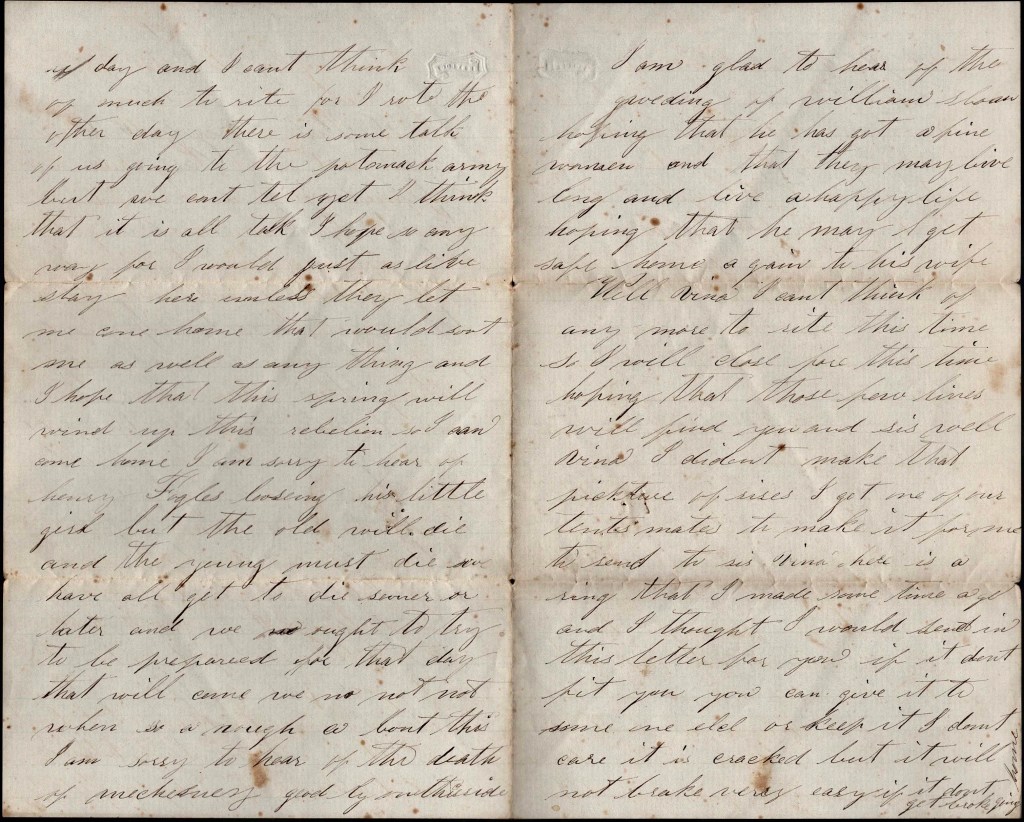 day and I cant think
of much to rite for I rote the
other day there is some talk
of us going to the potomack army
but we cant tel yet I think
that it is all talk I hope so any
way for I would just as live
stay here unless they let
me come home that would soot
me as well as any thing and
I hope that this spring will
wind up this rebelion so I can
come home I am sorry to hear of
henry Fogles looseing his little
girl but the old will die
and the young must die we
have all got to die sooner or
later and we ought to try
to be prepared for that day
that will come we no not not
when so a nough a bout this
I am sorry to hear of the death
of good by
I am glad to hear of the
weding of william sloan
hoping that he has got a fine
women and that they may live
long and live a happy life
hoping that he may get
safe home a gain to his wife
Well Vina I cant think of
any more to rite this time
so I will close for this time
hoping that those few lines
will find you and sis well
Vina I dident make that
pickture of sises I got one of our
tentes mates to make it for me
to send to sis Vina here is a
ring that I made some time ago
and I thought I would send in
this letter for you if it dont
fit you you can give it to
some one eld or keep it I dont
care it is cracked but it will
not brake very easy if it dont
get broke going home